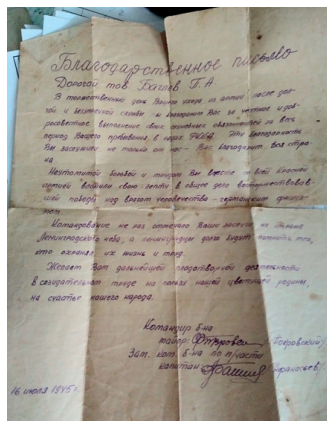 Благодарственное письмо
Дорогой тов Багаев П. А
В торжественный день Вашего ухода из армии после дол-
гой и безупречной службы благодарит Вас за честное и доб-
росовестное выполнение своих основных обязанностей за весь
период Вашего пребывания в нарах РККА. Эту благодарность
Вы заслужили не только от нас - Вас благодарит вся стра-
на
Неутомимой борьбой и трудом Вы вместе со всей Красной
армией вложили свою лепту в общее дело восторжествовав-
шей победы над врагом человечества - германским фашиз-
мом
Командование не раз отмечало Ваши заслуги по охране
Ленинградского неба, а ленинградцы долго будут помнить тех,
кто охранял их жизнь и труд.
Желает Вам дальнейшей плодотворной деятельности
в созидательном труде на пользу нашей цветущей родины,
на счастье нашего народа.
Командир б-на
майор Покровский
Зам. ком. б-на по п/части
капитан
16 июля 1945 г.